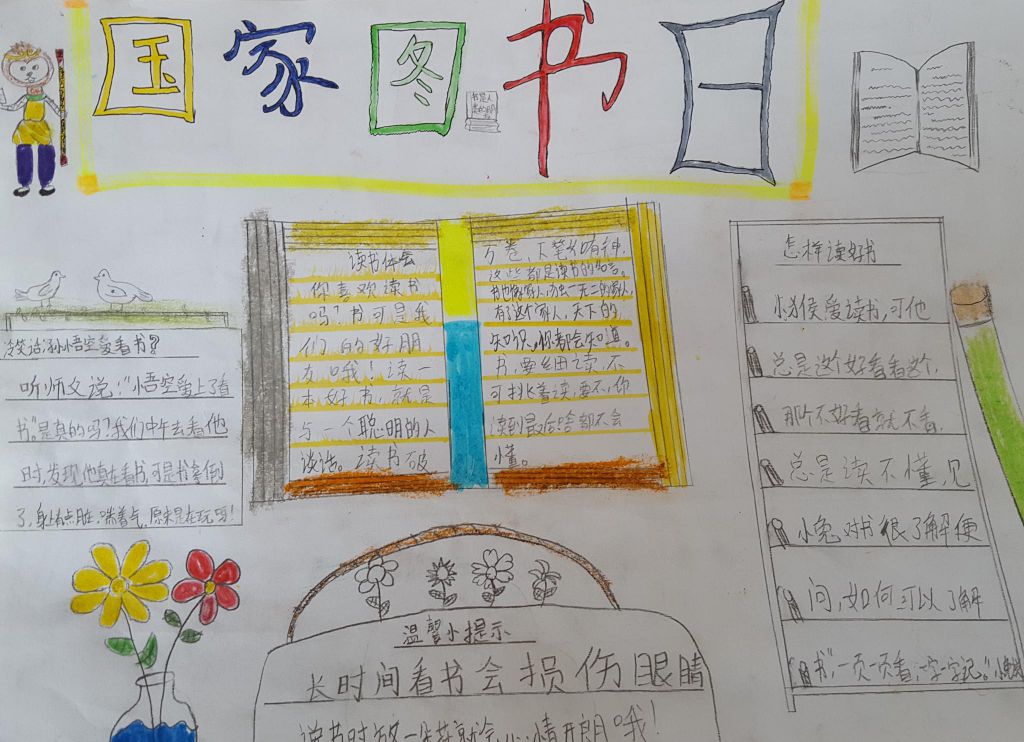 国家图书日
冷笑话:孙悟空爱看书?
听师父说:“小悟空留上了看
书。”是真的吗?我们中午去看他
时,发现,他真在看书,可是书拿倒
了,身上有点脏,喘着气,原来是在玩吗!
读书体会
你喜欢读书
吗?书可是我
们的好朋
友哦!读一
本好书,就是
与一个聪明的人
谈话。读书破
万卷,下笔如有神.
这些都是读书的名言。
书也像家人,
有了这个家人,天下的
知识,你都会知道。
书,要细读,不
可挑着读,要不,你
读到最后啥都不会
懂。
怎样读好书
小猴爱读书,可他
总是这个好看看这个,
那个不好看就不看,
总是读不懂,见
小兔对书很了解便
问,如何可以了解
书“一页一页看,一字一字记。”
温馨小提示
长时间看书会损伤眼睛
心情开朗哦!